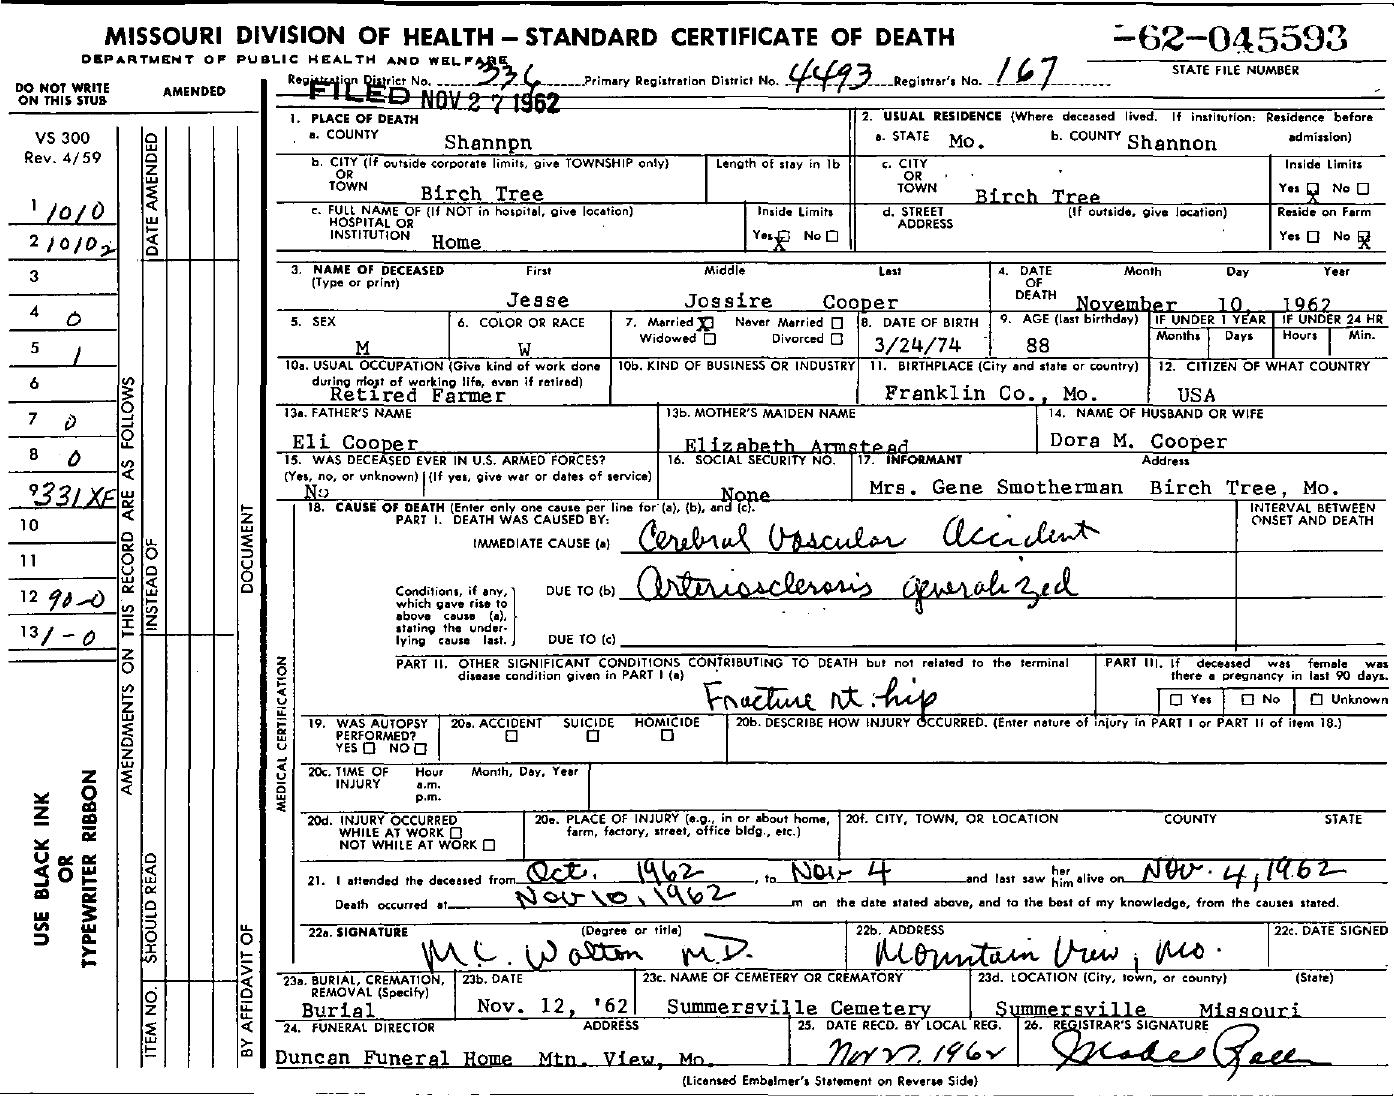 MISSOURI DIVISION OF HEALTH — STANDARD CERTIFICATE OF DEATH
-62-045593
DEPARTMENT OF PUBLIC HEALTH AND WELFARE
STATE FILE NUMBER
Registration District No. 336 Primary Registration District No. 4493 Registrar's No. 167
FILED NOV 27 1962
DO NOT WRITE ON THIS STUB
AMENDED
VS 300
Rev. 4/59
1 1010
2 10102
3
4 0
5 1
6
7 0
8 0
9 331XF
10
11
12 90-0
13 1-0
USE BLACK INK
OR
TYPEWRITER RIBBON
AMENDMENTS ON THIS RECORD ARE AS FOLLOWS
DATE AMENDED
INSTEAD OF
DOCUMENT
SHOULD READ
ITEM NO.
BY AFFIDAVIT OF
MEDICAL CERTIFICATION
1. PLACE OF DEATH
a. COUNTY Shannpn
2. USUAL RESIDENCE (Where deceased lived. If institution: Residence before admission)
a. STATE Mo. b. COUNTY Shannon
b. CITY (If outside corporate limits, give TOWNSHIP only) OR TOWN Birch Tree
Length of stay in 1b
c. CITY OR TOWN Birch Tree
Inside Limits
Yes X No
c. FULL NAME OF (If NOT in hospital, give location) HOSPITAL OR INSTITUTION Home
Inside Limits
Yes X No
d. STREET ADDRESS (If outside, give location)
Reside on Farm
Yes No X
3. NAME OF DECEASED (Type or print) First Middle Last
Jesse Jossire Cooper
4. DATE OF DEATH Month Day Year
November 10, 1962
5. SEX
M
6. COLOR OR RACE
W
7. Married X Never Married
Widowed Divorced
8. DATE OF BIRTH
3/24/74
9. AGE (last birthday)
88
IF UNDER 1 YEAR
Months Days
IF UNDER 24 HR
Hours Min.
10a. USUAL OCCUPATION (Give kind of work done during most of working life, even if retired)
Retired Farmer
10b. KIND OF BUSINESS OR INDUSTRY
11. BIRTHPLACE (City and state or country)
Franklin Co., Mo.
12. CITIZEN OF WHAT COUNTRY
USA
13a. FATHER'S NAME
Eli Cooper
13b. MOTHER'S MAIDEN NAME
Elizabeth Armstead
14. NAME OF HUSBAND OR WIFE
Dora M. Cooper
15. WAS DECEASED EVER IN U.S. ARMED FORCES?
(Yes, no, or unknown) (If yes, give war or dates of service)
No
16. SOCIAL SECURITY NO.
None
17. INFORMANT Address
Mrs. Gene Smotherman Birch Tree, Mo.
18. CAUSE OF DEATH (Enter only one cause per line for (a), (b), and (c).
PART I. DEATH WAS CAUSED BY:
INTERVAL BETWEEN ONSET AND DEATH
IMMEDIATE CAUSE (a) Cerebral Vascular Accident
Conditions, if any, which gave rise to above cause (a), stating the underlying cause last.
DUE TO (b) Arteriosclerosis generalized
DUE TO (c)
PART II. OTHER SIGNIFICANT CONDITIONS CONTRIBUTING TO DEATH but not related to the terminal disease condition given in PART I (a)
Fracture rt. hip
PART III. If deceased was female was there a pregnancy in last 90 days.
Yes No Unknown
19. WAS AUTOPSY PERFORMED?
YES NO
20a. ACCIDENT SUICIDE HOMICIDE
20b. DESCRIBE HOW INJURY OCCURRED. (Enter nature of injury in PART I or PART II of item 18.)
20c. TIME OF INJURY Hour a.m. p.m. Month, Day, Year
20d. INJURY OCCURRED
WHILE AT WORK
NOT WHILE AT WORK
20e. PLACE OF INJURY (e.g., in or about home, farm, factory, street, office bldg., etc.)
20f. CITY, TOWN, OR LOCATION COUNTY STATE
21. I attended the deceased from Oct. 1962, to Nov 4 and last saw her him alive on Nov. 4, 1962
Death occurred at Nov 10, 1962 m on the date stated above, and to the best of my knowledge, from the causes stated.
22a. SIGNATURE (Degree or title)
M.C. Walton M.D.
22b. ADDRESS
Mountain View, Mo.
22c. DATE SIGNED
23a. BURIAL, CREMATION, REMOVAL (Specify)
Burial
23b. DATE
Nov. 12, '62
23c. NAME OF CEMETERY OR CREMATORY
Summersville Cemetery
23d. LOCATION (City, town, or county) (State)
Summersville Missouri
24. FUNERAL DIRECTOR ADDRESS
Duncan Funeral Home Mtn. View, Mo.
25. DATE RECD. BY LOCAL REG.
Nov 27, 1962
26. REGISTRAR'S SIGNATURE
(Licensed Embalmer's Statement on Reverse Side)